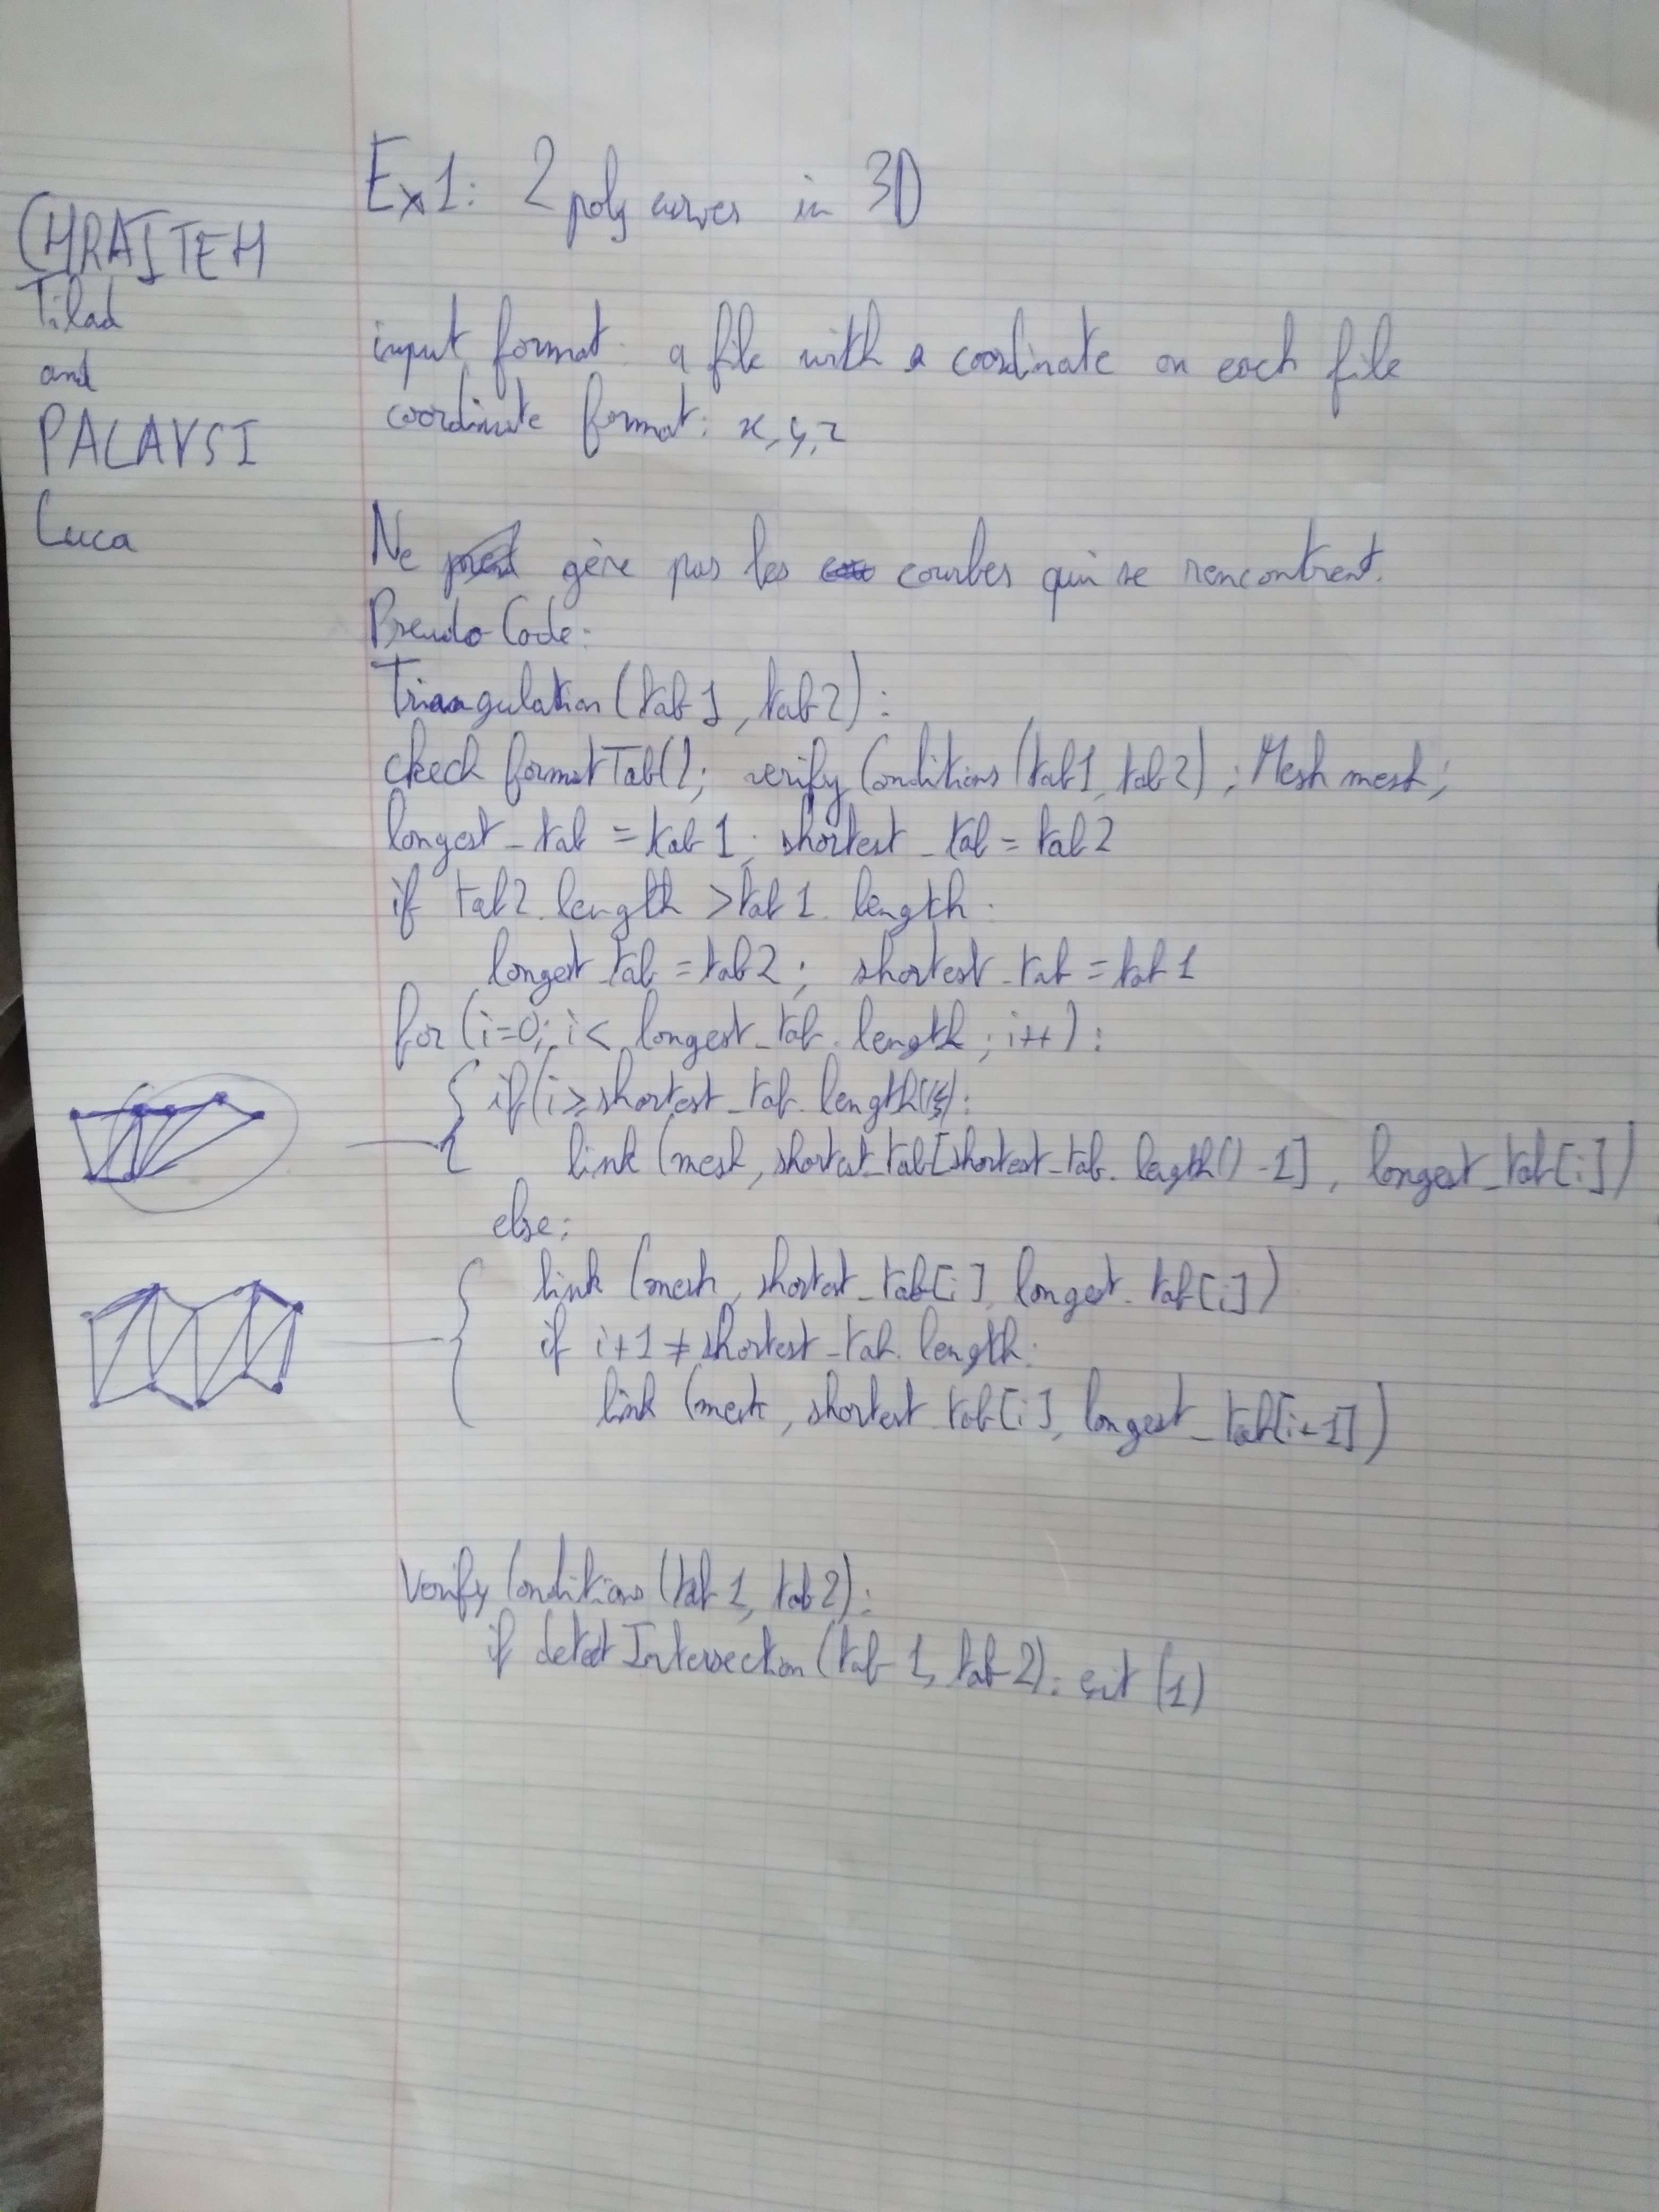 Ex1: 2 poly curves in 3D
CHRAITEH
Tilad
and
PALAYSI
Luca
input format: a file with a coordinate on each file
coordinate format: x,y,z
Ne gère pas les courbes qui se rencontrent.
Pseudo-Code:
Triangulation (tab1, tab2):
check formatTab(); verify Conditions (tab1, tab2); Mesh mesh;
longest_tab = tab1; shortest_tab = tab2
if tab2.length > tab1.length:
longest_tab = tab2; shortest_tab = tab1
for (i=0; i< longest_tab.length; i++):
if (i ≥ shortest_tab.length()):
link (mesh, shortest_tab[shortest_tab.length()-1], longest_tab[i])
else:
link (mesh, shortest_tab[i], longest_tab[i])
if i+1 ≠ shortest_tab.length:
link (mesh, shortest_tab[i], longest_tab[i+1])
Verify Conditions (tab1, tab2):
if detect Intersection (tab1, tab2): exit (1)